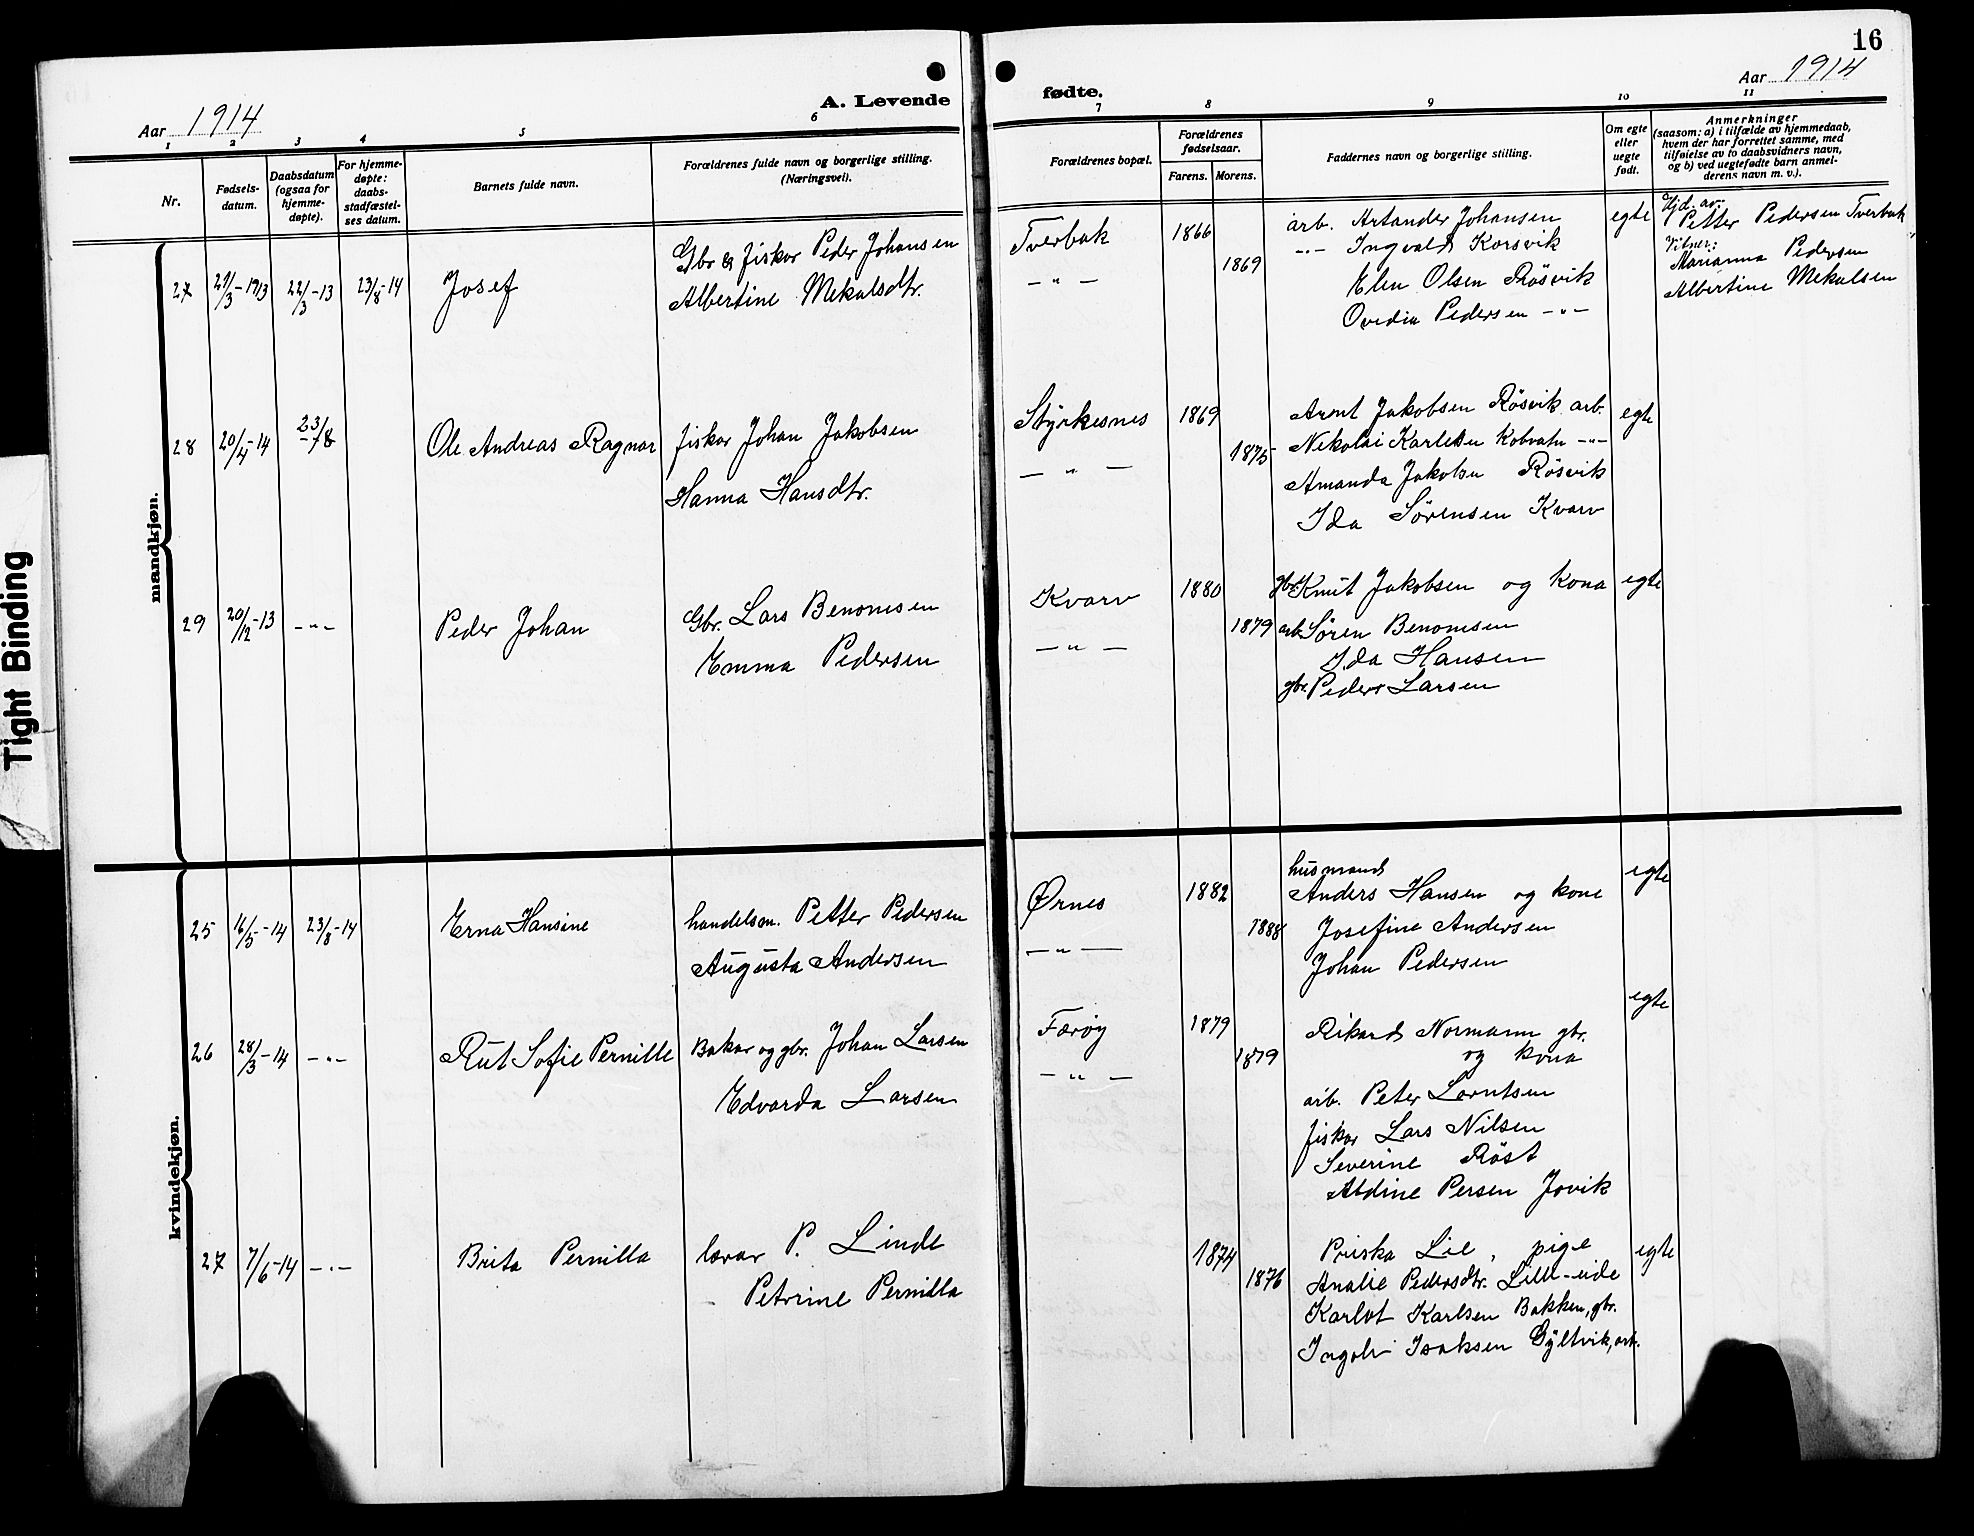 16
Aar 1914
A. Levende
fødte.
Aar 1914
1 2 3 4 5 6 7 8 9 10 11
Nr.
Fødsels-
datum.
Daabsdatum
(ogsaa for
hjemme-
døpte).
For hjemme-
døpte:
daabs-
stadfæstel-
ses datum.
Barnets fulde navn.
Forældrenes fulde navn og borgerlige stilling.
(Næringsvei).
Forældrenes bopæl.
Forældrenes
fødselsaar.
Farens. Morens.
Faddernes navn og borgerlige stilling.
Om egte
eller
uegte
født.
Anmerkninger
(saasom: a) i tilfælde av hjemmedaab,
hvem der har forrettet samme, med
tilføielse av to daabsvidners navn,
og b) ved uegtefødte barn anmel-
derens navn m. v.).
mandkjøn.
27 21/3-1913 22/3-13 23/8-14 Josef
Gbr & fisker Peder Johansen
Albertine Mekalsdtr.
Tverbak 1866
— " — 1869
arb. Artander Johansen
-"- Ingvald Korsvik
Elen Olsen Røsvik
Ovedia Pedersen -"-
egte
Hjd. av
Petter Pedersen Tverbak
Vitner:
Marianna Pedersen
Albertine Mekalsen
28 20/4-14 23/8 Ole Andreas Ragnar
fisker Johan Jakobsen
Hanna Hansdtr.
Styrkesnes 1869
— " — 1875
Arnt Jakobsen Røsvik arb.
Nekolai Karlsen Kobvatn -"-
Amanda Jakobsen Røsvik
Ida Sørensen Kvarv
egte
29 20/12-13 -"- Peder Johan
Gbr. Lars Benonisen
Emma Pedersen
Kvarv 1880
— " — 1879
gbr Knut Jakobsen og kona
arb Søren Benonisen
Ida Hansen
gbr Peder Larsen
egte
kvindekjøn.
25 16/5-14 23/8-14 Erna Hansine
handelsm. Petter Pedersen
Augusta Andersen
Ørnes 1882
— " — 1888
husmand
Anders Hansen og kone
Josefine Andersen
Johan Pedersen
egte
26 28/3-14 -"- Rut Sofie Pernille
Baker og gbr. Johan Larsen
Edvarda Larsen
Færøy 1879
— " — 1879
Rikard Normann gbr.
og kona
arb. Peter Lorntsen
fisker Lars Nilsen
Severine Røst
Aldine Persen Jovik
egte
27 7/6-14 -"- Brita Pernilla
lærer P. Linde
- Petrine Pernilla
1874
1876
Priska Lie, pige
Analie Pedersdtr. Lille-eide
Karlot Karlsen Bakken, gbr.
Ingolv Isaksen Gyltvik, arb.
egte
Tight Binding